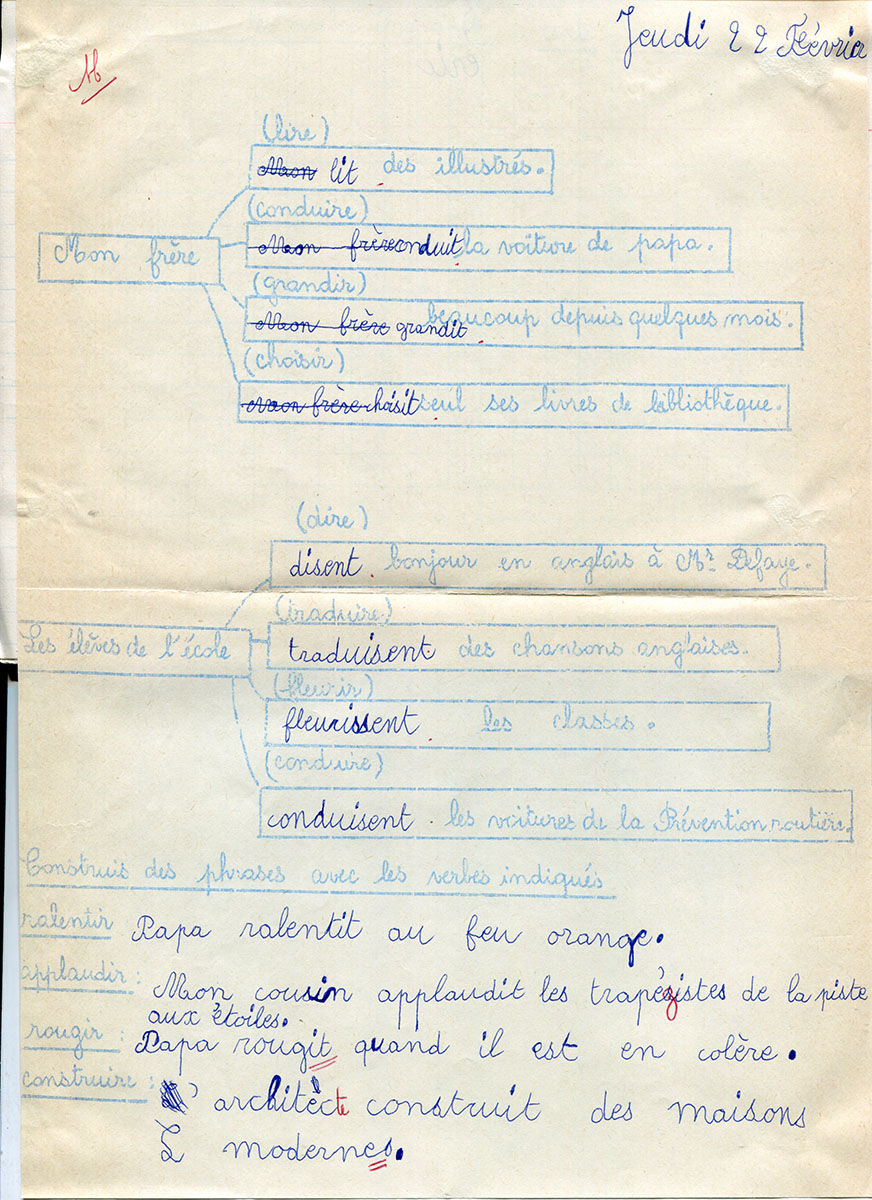 Jeudi 22 Février
(lire)
Mon lit des illustrés.
(conduire)
Mon frère
Mon frère conduit la voiture de papa.
(grandir)
Mon frère grandit beaucoup depuis quelques mois.
(choisir)
Mon frère choisit seul ses livres de bibliothèque.
(dire)
disent bonjour en anglais à Mr Defaye.
(traduire)
Les élèves de l'école
traduisent des chansons anglaises.
(fleurir)
fleurissent les classes.
(conduire)
conduisent les voitures de la Prévention routière.
Construis des phrases avec les verbes indiqués
ralentir Papa ralentit au feu orange.
applaudir : Mon cousin applaudit les trapézistes de la piste
aux étoiles.
rougir : Papa rougit quand il est en colère.
construire :
L'architècte construit des maisons
modernes.